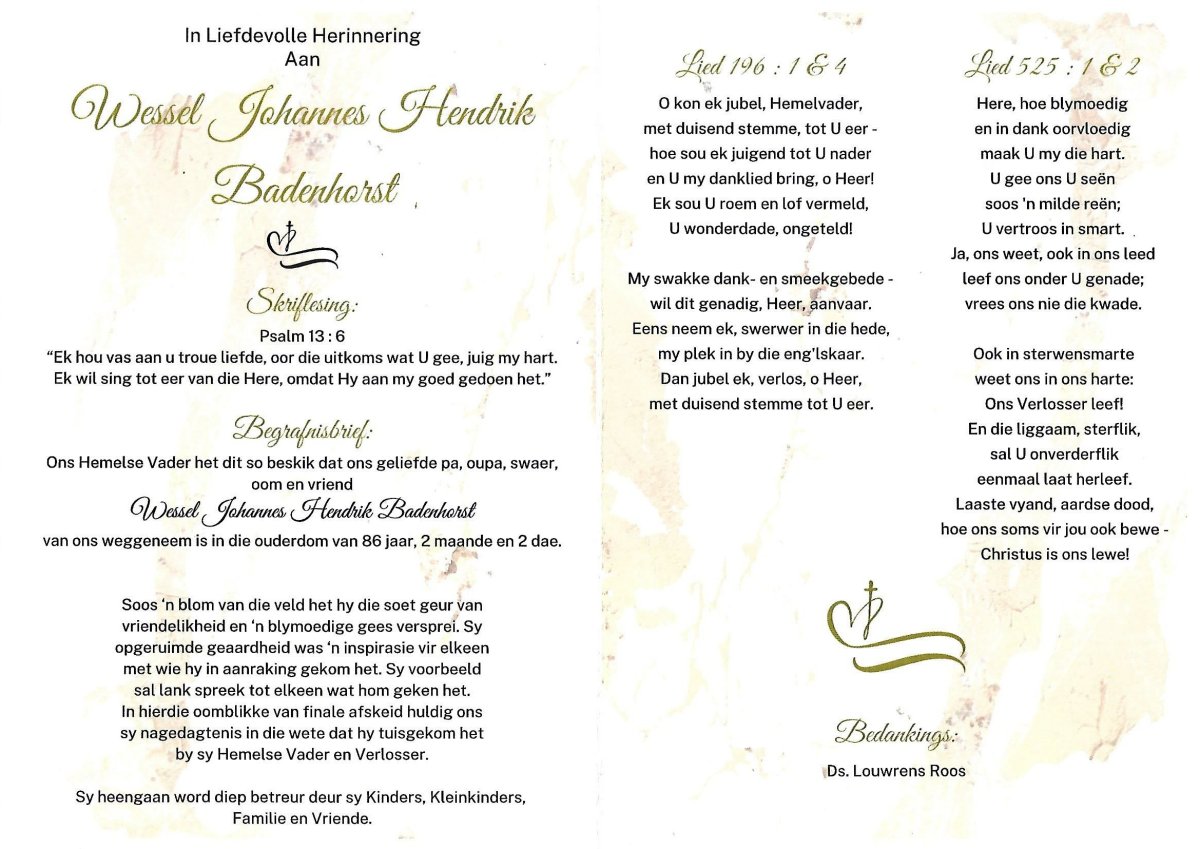 In Liefdevolle Herinnering
Aan
Wessel Johannes Hendrik
Badenhorst
Skriflesing:
Psalm 13 : 6
“Ek hou vas aan u troue liefde, oor die uitkoms wat U gee, juig my hart.
Ek wil sing tot eer van die Here, omdat Hy aan my goed gedoen het.”
Begrafnisbrief:
Ons Hemelse Vader het dit so beskik dat ons geliefde pa, oupa, swaer,
oom en vriend
Wessel Johannes Hendrik Badenhorst
van ons weggeneem is in die ouderdom van 86 jaar, 2 maande en 2 dae.
Soos ‘n blom van die veld het hy die soet geur van
vriendelikheid en ‘n blymoedige gees versprei. Sy
opgeruimde geaardheid was ‘n inspirasie vir elkeen
met wie hy in aanraking gekom het. Sy voorbeeld
sal lank spreek tot elkeen wat hom geken het.
In hierdie oomblikke van finale afskeid huldig ons
sy nagedagtenis in die wete dat hy tuisgekom het
by sy Hemelse Vader en Verlosser.
Sy heengaan word diep betreur deur sy Kinders, Kleinkinders,
Familie en Vriende.
Lied 196 : 1 & 4
O kon ek jubel, Hemelvader,
met duisend stemme, tot U eer -
hoe sou ek juigend tot U nader
en U my danklied bring, o Heer!
Ek sou U roem en lof vermeld,
U wonderdade, ongeteld!
My swakke dank- en smeekgebede -
wil dit genadig, Heer, aanvaar.
Eens neem ek, swerwer in die hede,
my plek in by die eng'lskaar.
Dan jubel ek, verlos, o Heer,
met duisend stemme tot U eer.
Lied 525 : 1 & 2
Here, hoe blymoedig
en in dank oorvloedig
maak U my die hart.
U gee ons U seën
soos 'n milde reën;
U vertroos in smart.
Ja, ons weet, ook in ons leed
leef ons onder U genade;
vrees ons nie die kwade.
Ook in sterwensmarte
weet ons in ons harte:
Ons Verlosser leef!
En die liggaam, sterflik,
sal U onverderflik
eenmaal laat herleef.
Laaste vyand, aardse dood,
hoe ons soms vir jou ook bewe -
Christus is ons lewe!
Bedankings:
Ds. Louwrens Roos